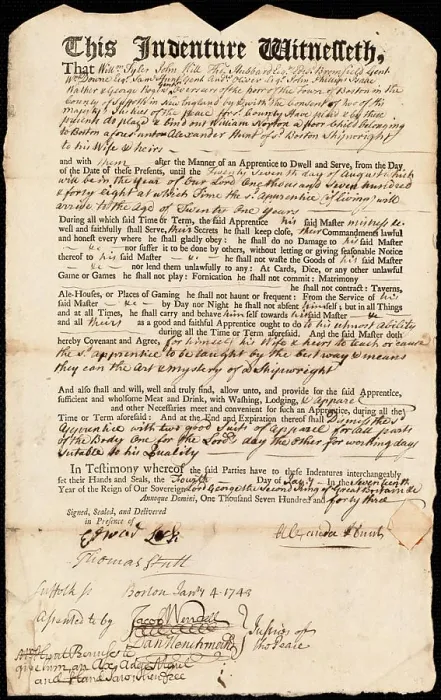 This Indenture Witnesseth,
That Willm Tyler John Hill Thos Hubbard Esqs Bromfield Gent
Wm Downe Esq Saml Hunt Gent Andw Oliver Esq John Phillips Isaac
Walker & George Overseers of the poor of the Town of Boston in the
County of Suffolk in New England by & with the Consent of two of his
majestys Justices of the peace for sd County Have placed & by these
presents do place & bind out William a poor Child belonging
to Boston aforesd unto Alexander Hunt of sd Boston Shipwright
to his Wife & heirs
and with them after the Manner of an Apprentice to Dwell and Serve, from the Day
of the Date of these Presents, until the Twenty Seventh day of August which
will be in the year of our Lord One thousand Seven hundred
& forty Eight at which time the sd Apprentice (if living) will
arrive to the Age of Twenty One years
During all which said Time or Term, the said Apprentice his said Master mistress &c
well and faithfully shall Serve, their Secrets he shall keep close, their Commandments lawful
and honest every where he shall gladly obey: he shall do no Damage to his said Master
&c nor suffer it to be done by others, without letting or giving seasonable Notice
thereof to his said Master &c he shall not waste the Goods of his said Master
&c nor lend them unlawfully to any: At Cards, Dice, or any other unlawful
Game or Games he shall not play: Fornication he shall not commit: Matrimony
he shall not contract: Taverns,
Ale-Houses, or Places of Gaming he shall not haunt or frequent: From the Service of his
said Master &c by Day nor Night he shall not absent himself; but in all Things
and at all Times, he shall carry and behave himself towards his said Master &c
and all theirs as a good and faithful Apprentice ought to do to his utmost ability
during all the Time or Term aforesaid. And the said Master doth
hereby Covenant and Agree, for himself his Wife & heirs to teach or cause
the sd apprentice to be taught by the best way & means
they can the Art & mystery of a Shipwright
And also shall and will, well and truly find, allow unto, and provide for the said Apprentice,
sufficient and wholsome Meat and Drink, with Washing, Lodging, & Apparel
and other Necessaries meet and convenient for such an Apprentice, during all the
Time or Term aforesaid: And at the End and Expiration thereof shall Dismiss the sd
Apprentice with two good Suits of Apparel for all parts
of the Body One for the Lords day the other for working days
Sutable to his Quality
In Testimony whereof, the said Parties have to these Indentures interchangeably
set their Hands and Seals, the Fourth Day of Jany In the Seventeenth
Year of the Reign of Our Sovereign Lord George the Second King of Great Britain &c
Annoque Domini, One Thousand Seven Hundred and forty three
Signed, Sealed, and Delivered
in Presence of
Alexander Hunt
Edward
Thomas
Suffolk ss Boston Jany 4 1743
Assented to by Jacob Wendell Justices of
Dan Henchman the Peace
Mr Hunt
give him an Ax, Adze,
and Hand Saw